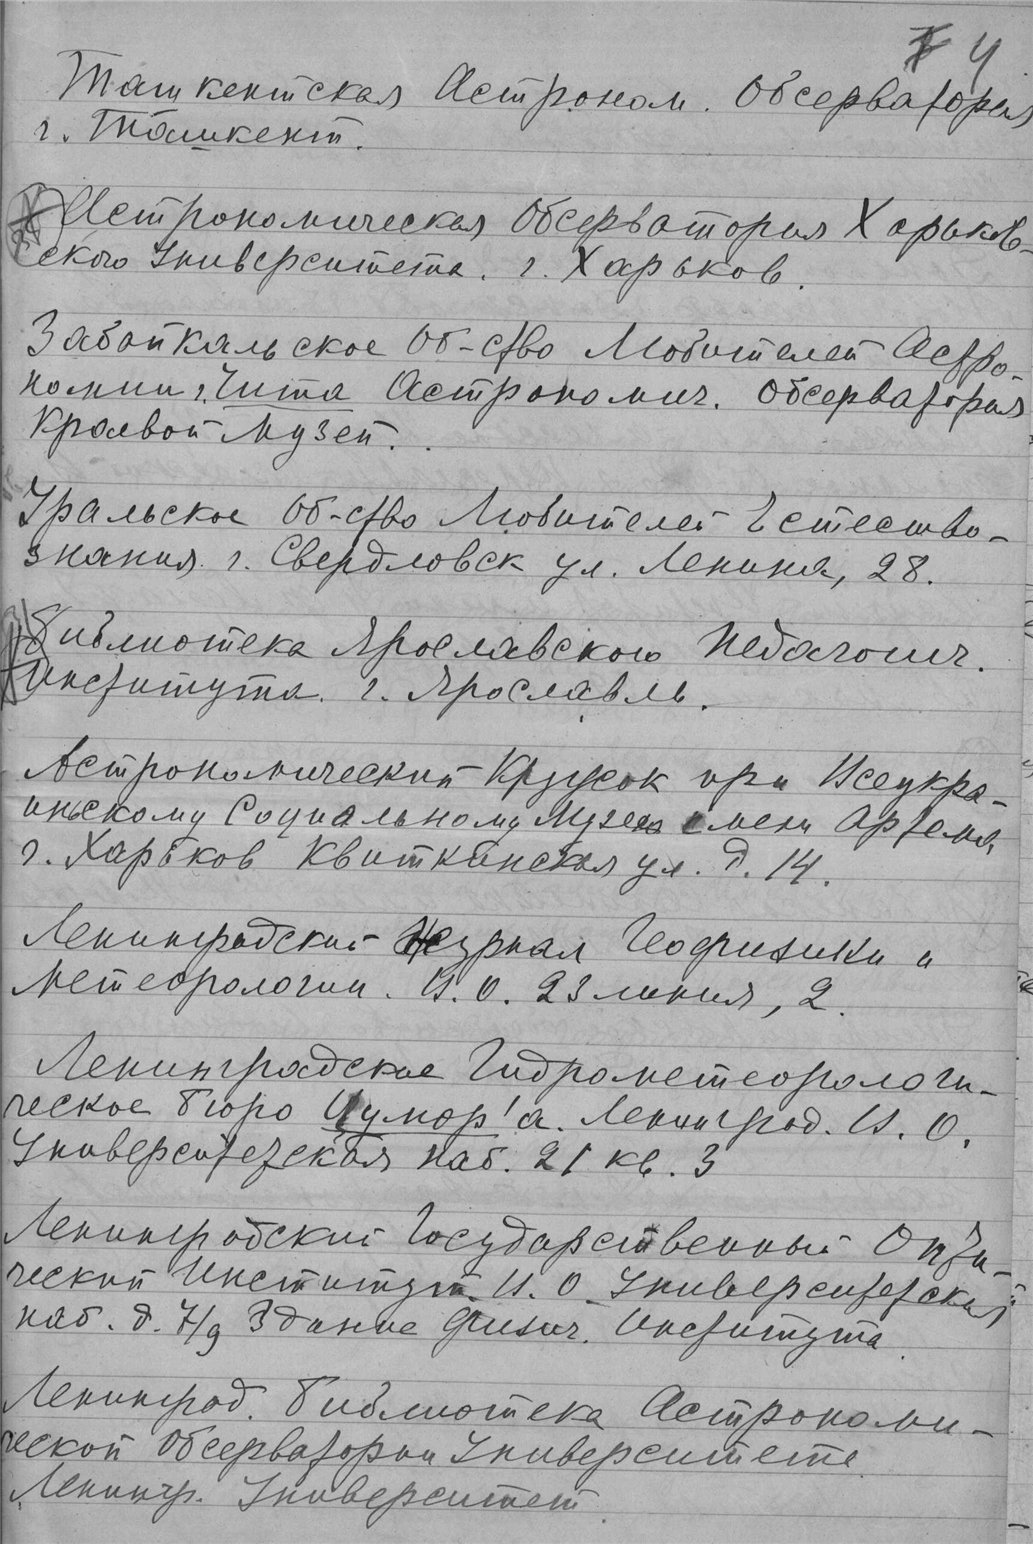 4
Ташкентская Астроном. Обсерватория
г. Ташкент.
Астрономическая Обсерватория Харьков-
ского Университета. г. Харьков.
Забайкальское Об-ство Любителей Астро-
номии г. Чита Астрономич. Обсерватория
Краевой Музей.
Уральское Об-ство Любителей Естество-
знания. г. Свердловск ул. Ленина, 28.
Библиотека Ярославского Педагогич.
Института. г. Ярославль.
Астрономический Кружок при Всеукра-
инскому Социальному Музею имени Артема,
г. Харьков Квиткинская ул. д. 14.
Ленинградский Журнал Геофизики и
Метеорологии. В. О. 23 линия, 2.
Ленинградское Гидрометеорологи-
ческое бюро Цумор'а. Ленинград. В. О.
Университетская наб. 21 кв. 3
Ленинградский Государственный Опти-
ческий Институт. В. О. Университетская
наб. д. 7/9 Здание Физич. Института.
Ленинград. Библиотека Астрономи-
ческой Обсерватории Университете
Ленингр. Университет